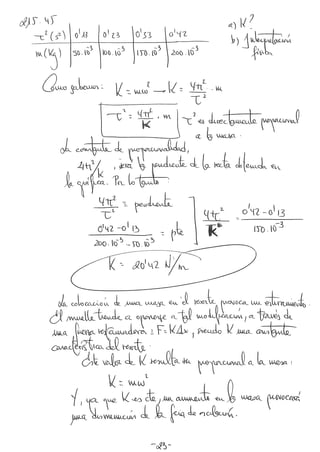 215.45
τ²(s²) | 0'13 | 0'23 | 0'33 | 0'42
m(Kg) | 50·10⁻³ | 100·10⁻³ | 150·10⁻³ | 200·10⁻³
a) K?
b) Interpretación física
Como sabemos: K = mω² → K = 4π²/τ² · m
τ² = 4π²/K · m
τ² es directamente proporcional a la masa.
La constante de proporcionalidad,
4π²/K, será la pendiente de la recta definida en
la gráfica. Por lo tanto:
4π²/τ² = pendiente
0'42-0'13 / 200·10⁻³-50·10⁻³ = pte
4π²/K = 0'42-0'13 / 150·10⁻³
K = 20'42 N/m
La colocación de una masa en el resorte provoca un estiramiento.
El muelle tiende a oponerse a tal modificación, a través de
una fuerza recuperadora: F=KΔx, siendo K una constante
característica del resorte.
Este valor de K resulta ser proporcional a la masa:
K = mω²
Y, ya que K es cte, un aumento en la masa provocará
una disminución de la fcia de oscilación.
-23-